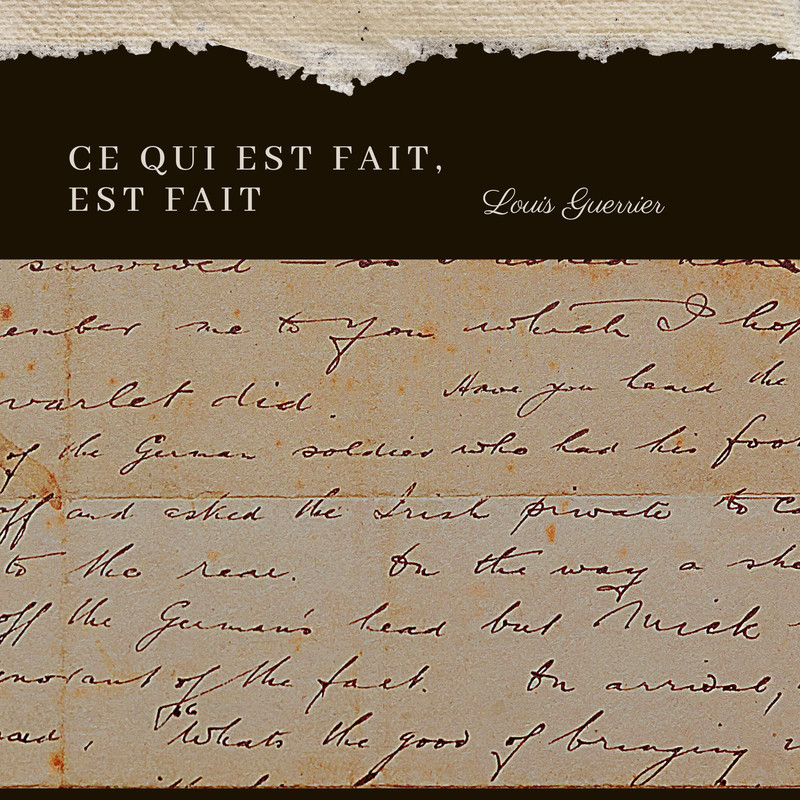 CE QUI EST FAIT,
EST FAIT
Louis Guerrier
survived —
ember me to you which I hop
varlet did. Have you heard the
of the German soldier who had his foo
off and asked the Irish private to ca
to the rear. On the way a she
off the German's head but Mick
gnorant of the fact. On arrival,
said, "Whats the good of bringing